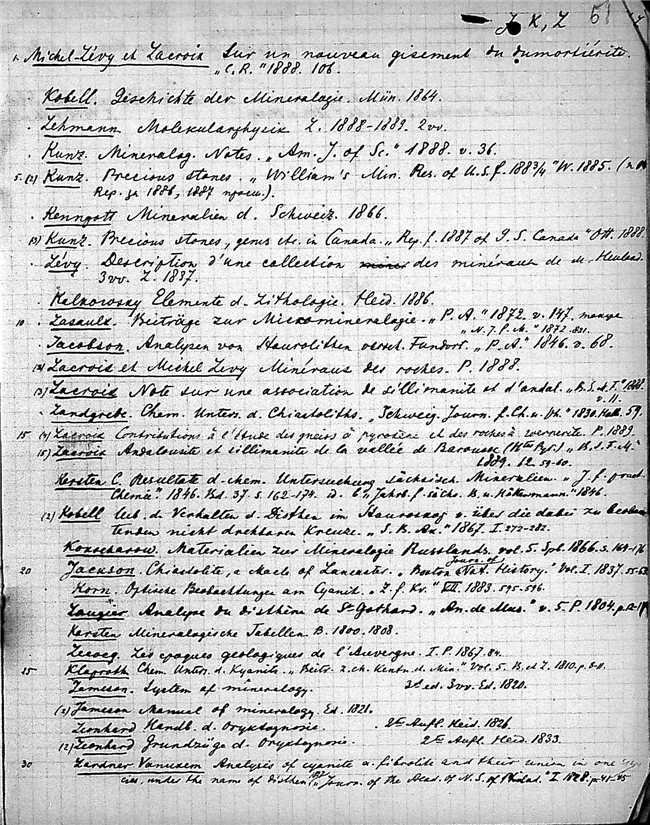 J, K, L 61
1. Michel-Lévy et Lacroix Sur un nouveau gisement du dumortiérite.
„C. R.“ 1888. 106.
Kobell. Geschichte der Mineralogie. Mün. 1864.
Lehmann. Molekularphysik L. 1888-1889. 2vv.
Kunz. Mineralog. Notes. „Am. J. of Sc.“ 1888. v. 36.
5. (2) Kunz. Precious stones. „William's Min. Res. of U.S. f. 1883/4“ W. 1885.
Rep. за 1886, 1887 просм.).
Kenngott Mineralien d. Schweiz. 1866.
(3) Kunz. Precious stones, gems etc. in Canada. „Rep. f. 1887 of G. S. Canada“ Ott. 1888.
Lévy. Description d'une collection des minéraux de M. Heuland.
3vv. L. 1837.
Kalkowsky Elemente d. Lithologie. Heid. 1886.
10. Lasaulx. Beiträge zur Micromineralogie. „P. A.“ 1872. v. 147. тоже
„N. J. f. M.“ 1872. 821.
Jacobson. Analysen von Staurolithen versch. Fundort. „P. A.“ 1846. v. 68.
(2) Lacroix et Michel Levy Minéraux des roches. P. 1888.
(3) Lacroix Note sur une association de sillimanite et d'andal. „B. S. d. F.“ 1888.
v. 11.
Landgrebe. Chem. Unters. d. Chiastoliths. „Schweig. Journ. f. Ch. u. Ph.“ 1830. Hall. 59.
15 (4) Lacroix Contributions à l'étude des gneiss à pyroxène et des roches à wernerite. P. 1889.
(5) Lacroix Andalousite et sillimanite de la vallée de Barousse (Htes Pyr.) „B. S. F. M.“
1889. 12. 59-60.
Kersten C. Resultate d. chem. Untersuchung sächsisch. Mineralien. „J. f. pract.
Chemie“ 1846. Bd. 37. S. 162-174. id. b. „Jahrb. f. sächs. B. u. Hüttenmann.“ 1846.
(2) Kobell Ueb. d. Verhalten d. Disthen im Stauroskop u. über die dabei zu beobach
tenden nicht drehbaren Kreuze. „S. B. Ak.“ 1867. I. 272-282.
Kokscharow. Materialien zur Mineralogie Russlands. vol. 5. Spb. 1866. S. 164-176
20 Jackson. Chiastolite, a Macle of Lancaster. „Boston Journ. of Nat. History.“ Vol. I. 1837. 55-62
Korn. Optische Beobachtungen am Cyanit. „Z. f. Kr.“ VII. 1883. 595-596.
Laugier Analyse du disthène de St Gothard. „An. de Mus.“ v. 5. P. 1804. p. 12-17
Karsten Mineralogische Tabellen. B. 1800. 1808.
Lecocq. Les époques géologiques de l'Auvergne. I. P. 1867. 84.
25 Klaproth Chem. Unters. d. Kyanits. „Beitr. z. ch. Kentn. d. Min.“ Vol. 5. B. et L. 1810. p. 8-11.
Jameson. System of mineralogy. 3d ed. 3vv. Ed. 1820.
(2) Jameson Manual of mineralogy. Ed. 1821.
Leonhard Handb. d. Oryktognosie. 2te Aufl. Heid. 1826.
(2) Leonhard Grundzüge d. Oryktognosie. 2te Aufl. Heid. 1833.
30 Lardner Vanuxem Analysis of cyanite a. fibrolite and their union in one spe
cies, under the name of disthen. „Journ. of the Acad. of N. S. of Philad.“ I 1828. p. 41-45